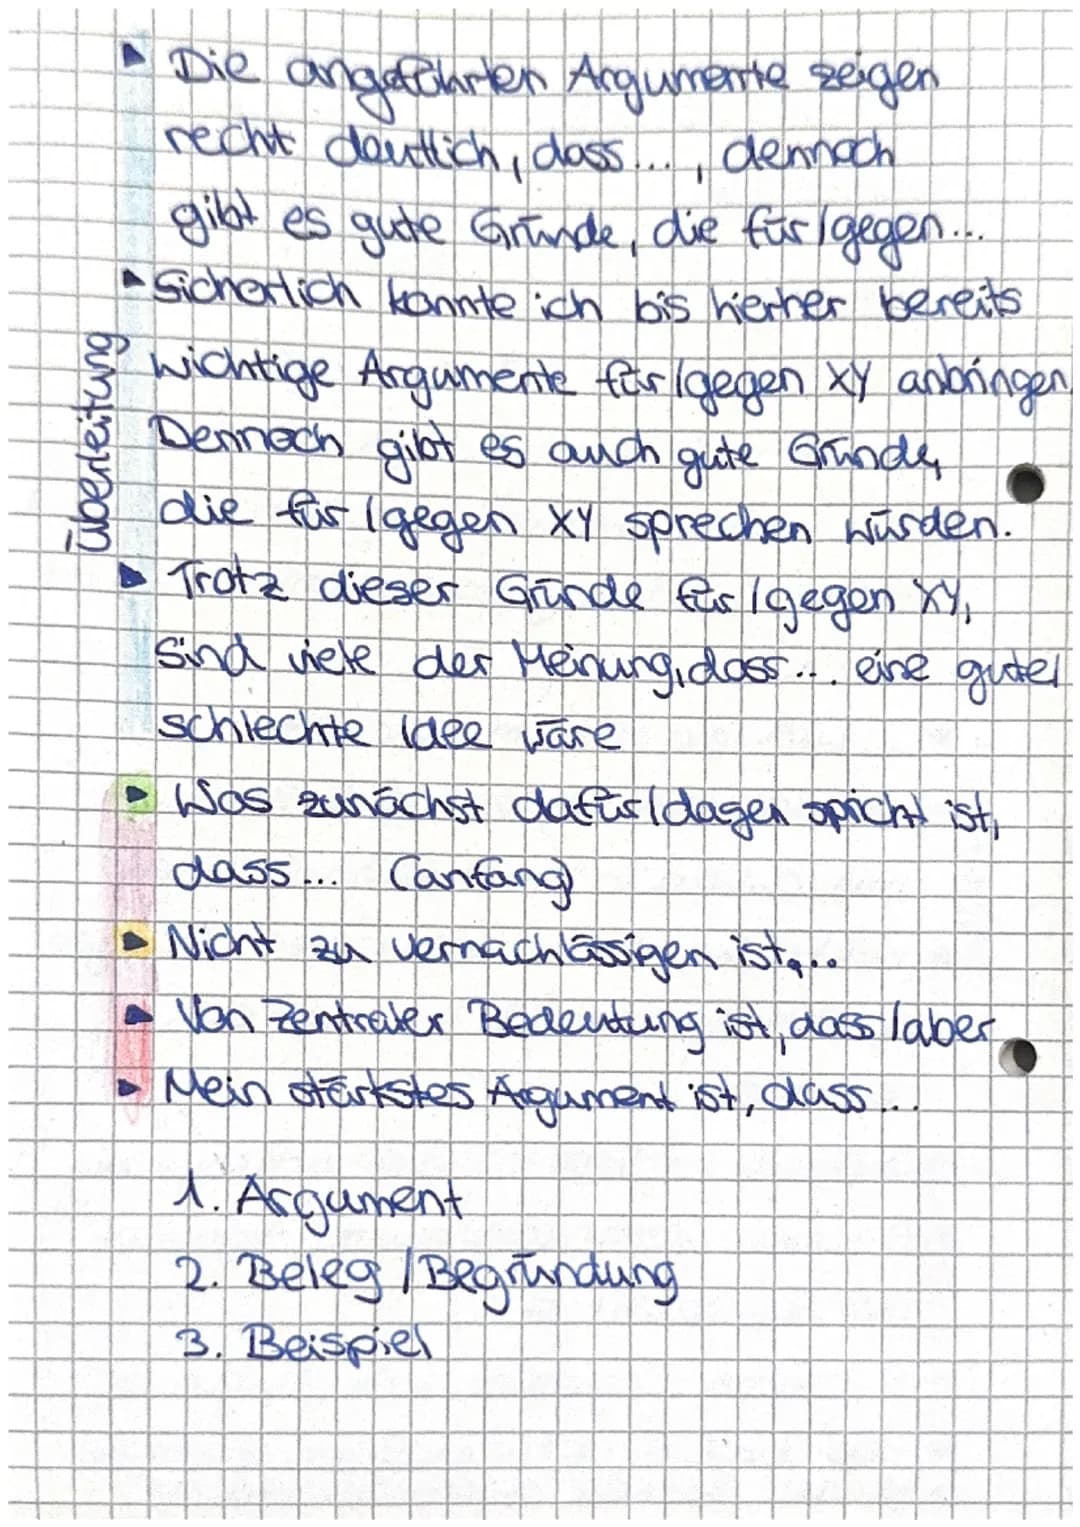 ▸ Die angeführten Argumente zeigen
recht deutlich, dass..., dennoch
gibt es gute Gründe, die für/gegen...
▸ Sicherlich konnte ich bis hierher bereits
wichtige Argumente für/gegen XY anbringen
Dennoch gibt es auch gute Gründe,
die für/gegen XY sprechen würden.
▸ Trotz dieser Gründe für/gegen XY,
sind viele der Meinung, dass... eine gute/
schlechte Idee wäre
Überleitung
▸ Was zunächst dafür/dagen spicht ist,
dass... (anfang)
▸ Nicht zu vernachlässigen ist,...
▸ Von Zentraler Bedeutung ist, dass/aber
▸ Mein stärkstes Argument ist, dass...
1. Argument
2. Beleg/Begründung
3. Beispiel